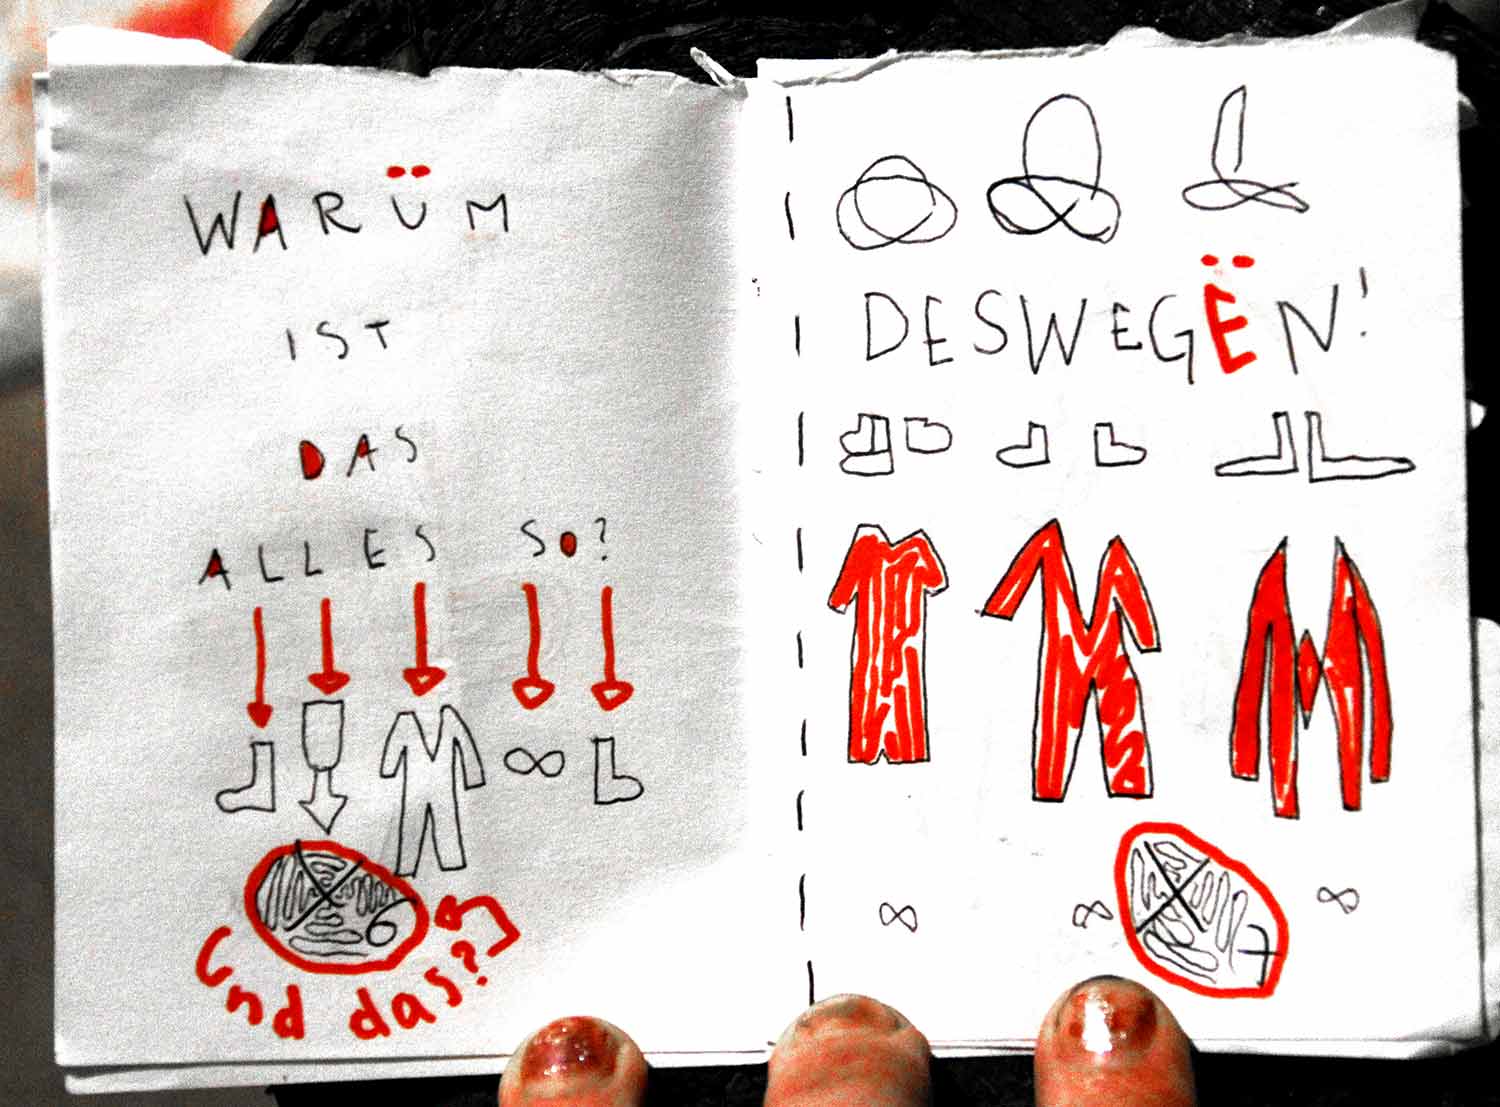 WARÜM
IST
DAS
ALLES SO?
∞
6
Und das?
DESWEGËN!
∞ ∞ ∞
7